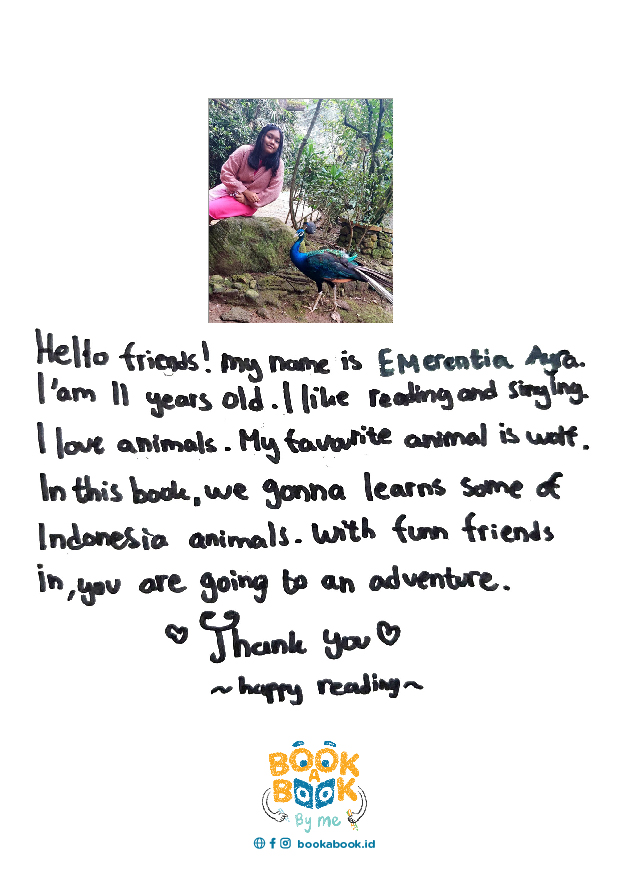 Hello friends! my name is EMerentia Ayra.
I'am 11 years old. I like reading and singing.
I love animals. My favourite animal is wolf.
In this book, we gonna learns some of
Indonesia animals. With funn friends
in, you are going to an adventure.
Thank you
~happy reading~
BOOK
A
BOOK
By me
bookabook.id